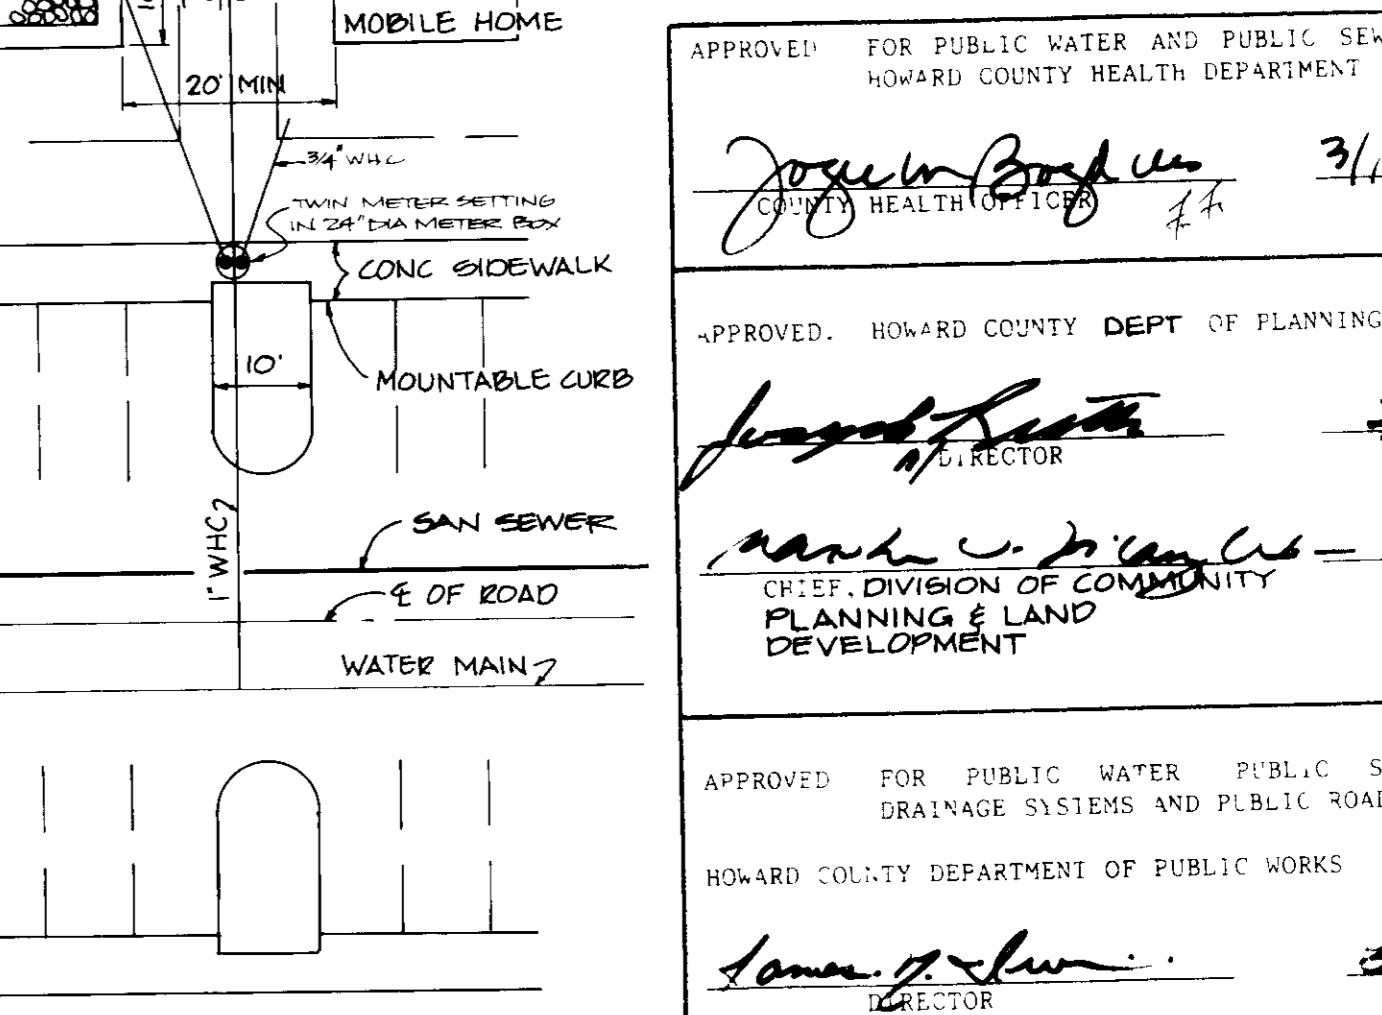 MOBILE HOME
20' MIN
3/4" WHC
TWIN METER SETTING
IN 24" DIA METER BOX
CONC SIDEWALK
10'
MOUNTABLE CURB
1" WHC
SAN SEWER
℄ OF ROAD
WATER MAIN
APPROVED FOR PUBLIC WATER AND PUBLIC SEW
HOWARD COUNTY HEALTH DEPARTMENT
3/
COUNTY HEALTH OFFICER
APPROVED. HOWARD COUNTY DEPT OF PLANNING
DIRECTOR
CHIEF, DIVISION OF COMMUNITY
PLANNING & LAND
DEVELOPMENT
APPROVED FOR PUBLIC WATER PUBLIC S
DRAINAGE SYSTEMS AND PUBLIC ROAD
HOWARD COUNTY DEPARTMENT OF PUBLIC WORKS
James
DIRECTOR